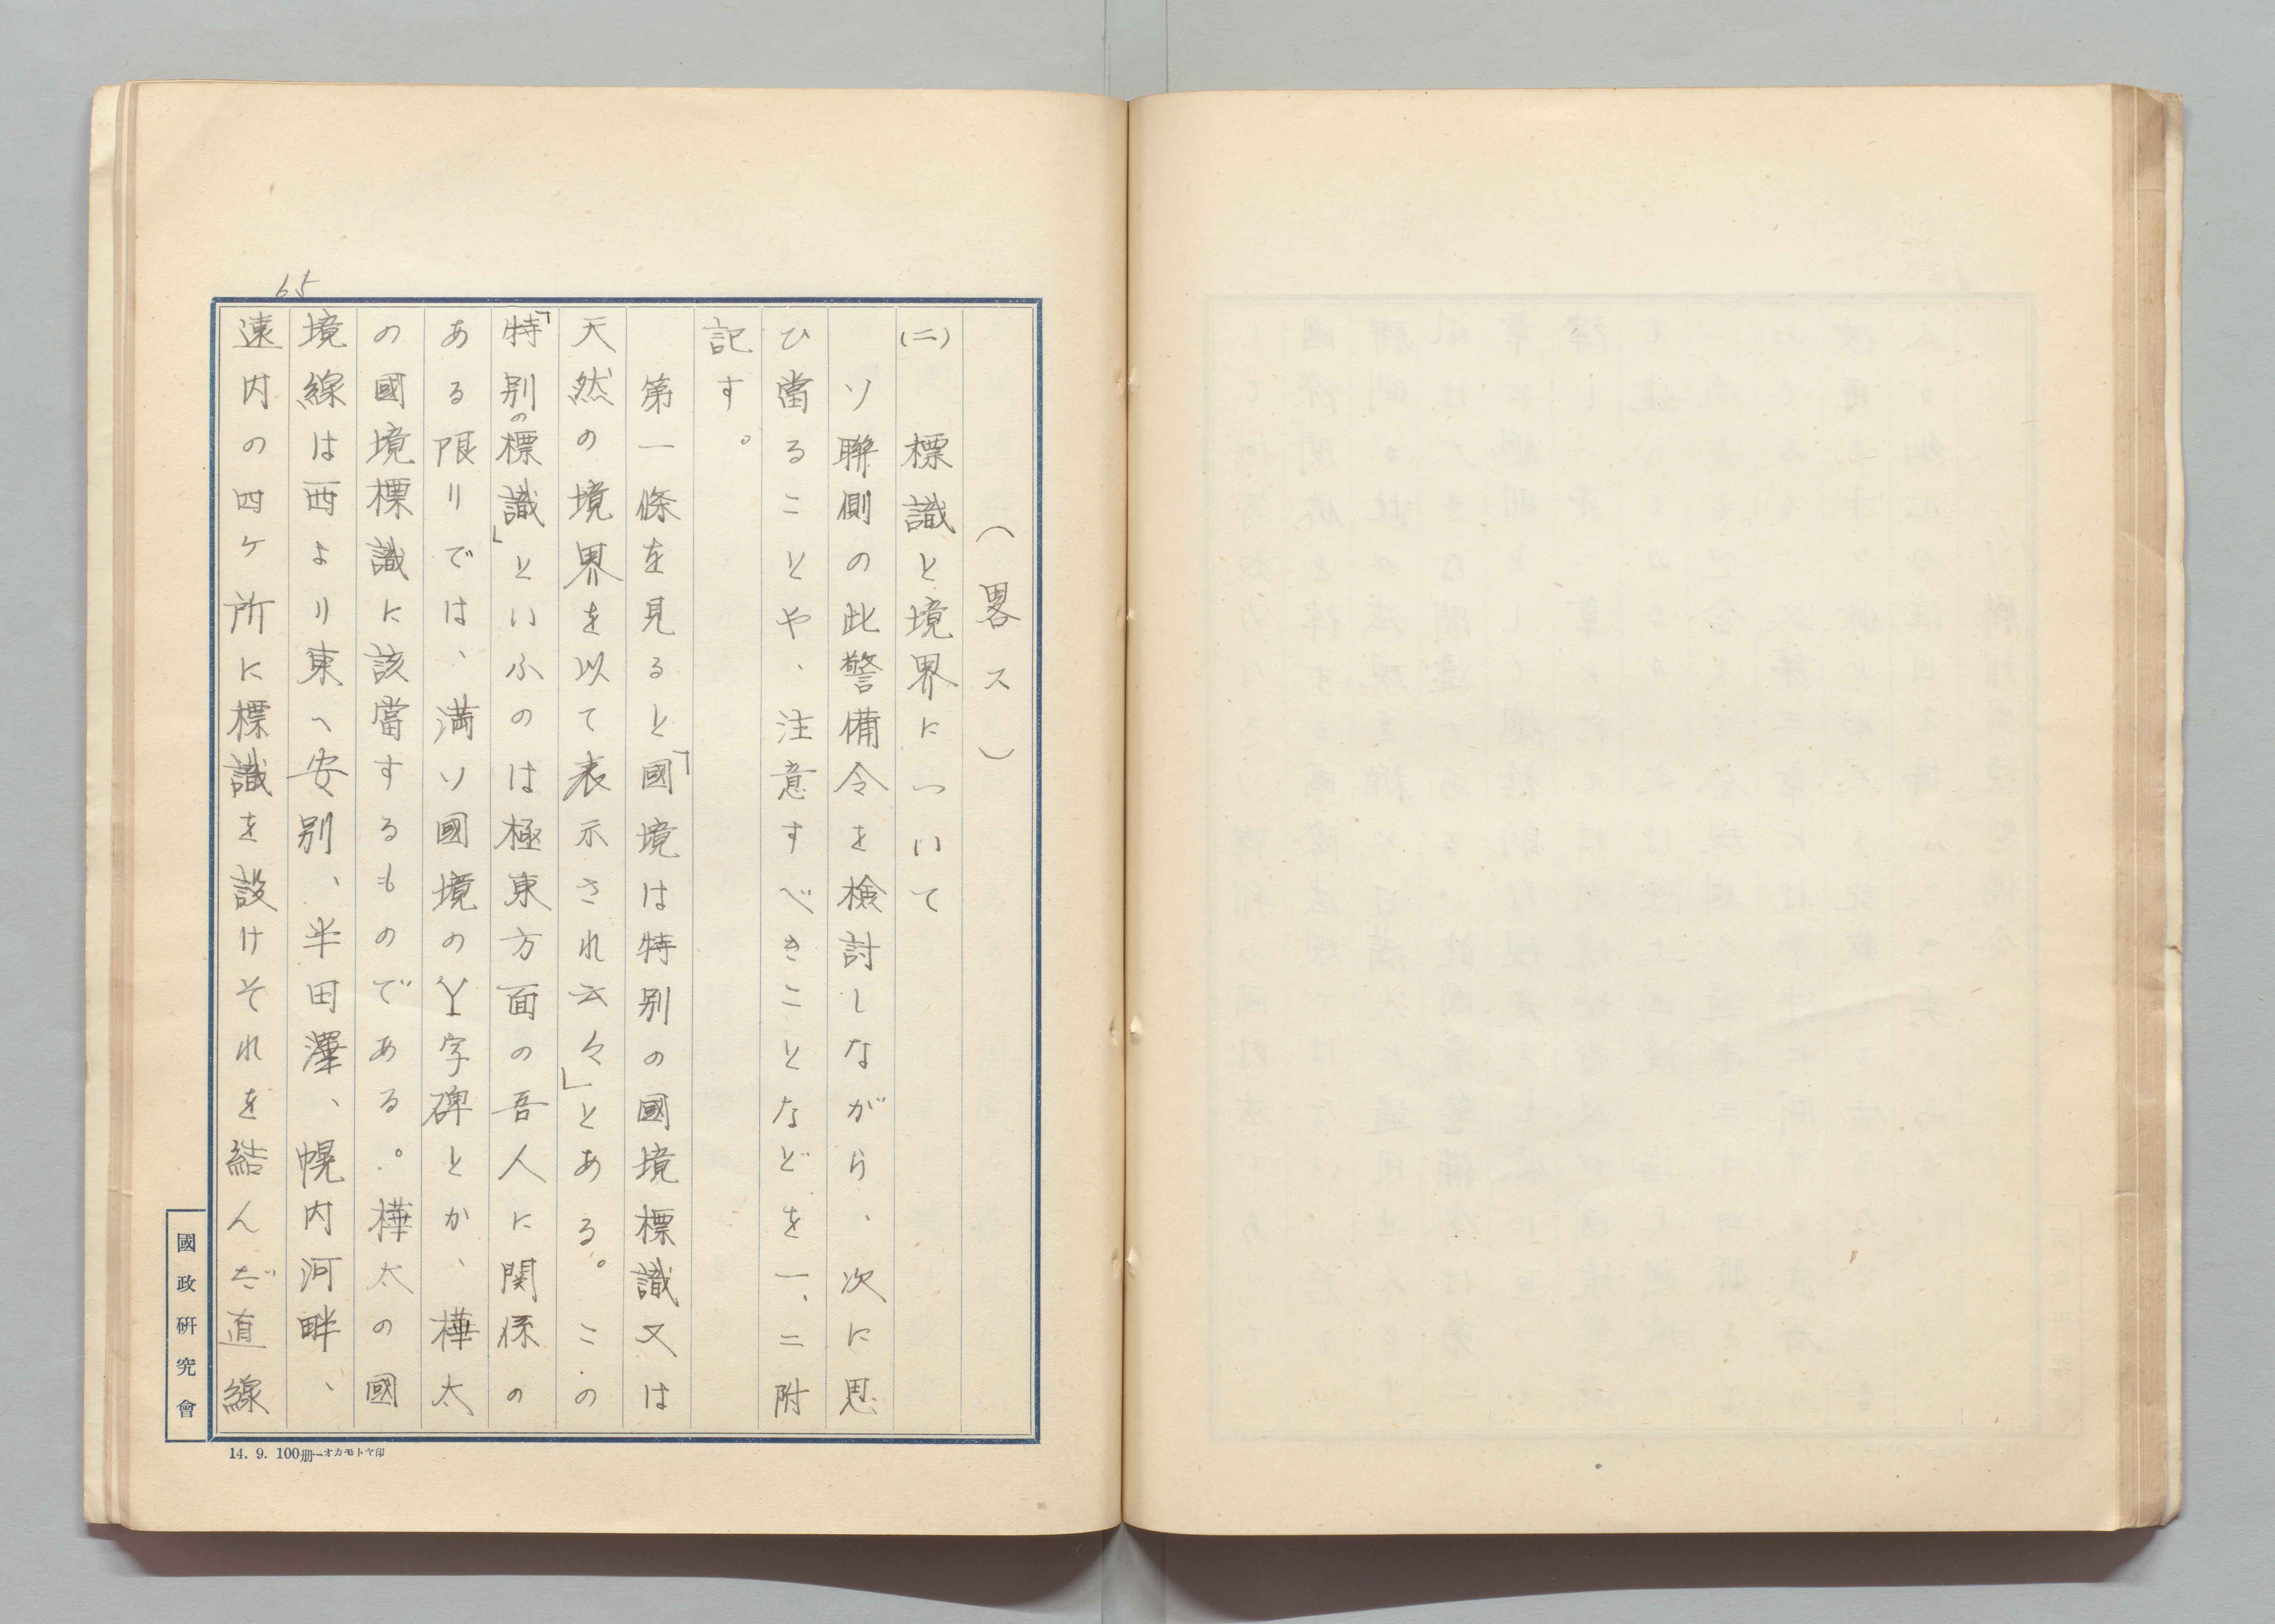 65
（畧ス）
(二)　標識と境界について
ソ聯側の此警備令を検討しながら、次に思
ひ當ることや、注意すべきことなどを一、二附
記す。
第一條を見ると「國境は特別の國境標識又は
天然の境界を以て表示され云々」とある。この
「特別の標識」といふのは極東方面の吾人に関係の
ある限リでは、満ソ國境のY字碑とか、樺太
の國境標識に該當するものである。樺太の國
境線は西よリ東へ安別、半田澤、幌内河畔、
遠内の四ケ所に標識を設けそれを結んだ直線
國政研究會
14. 9. 100册—オカモトヤ印